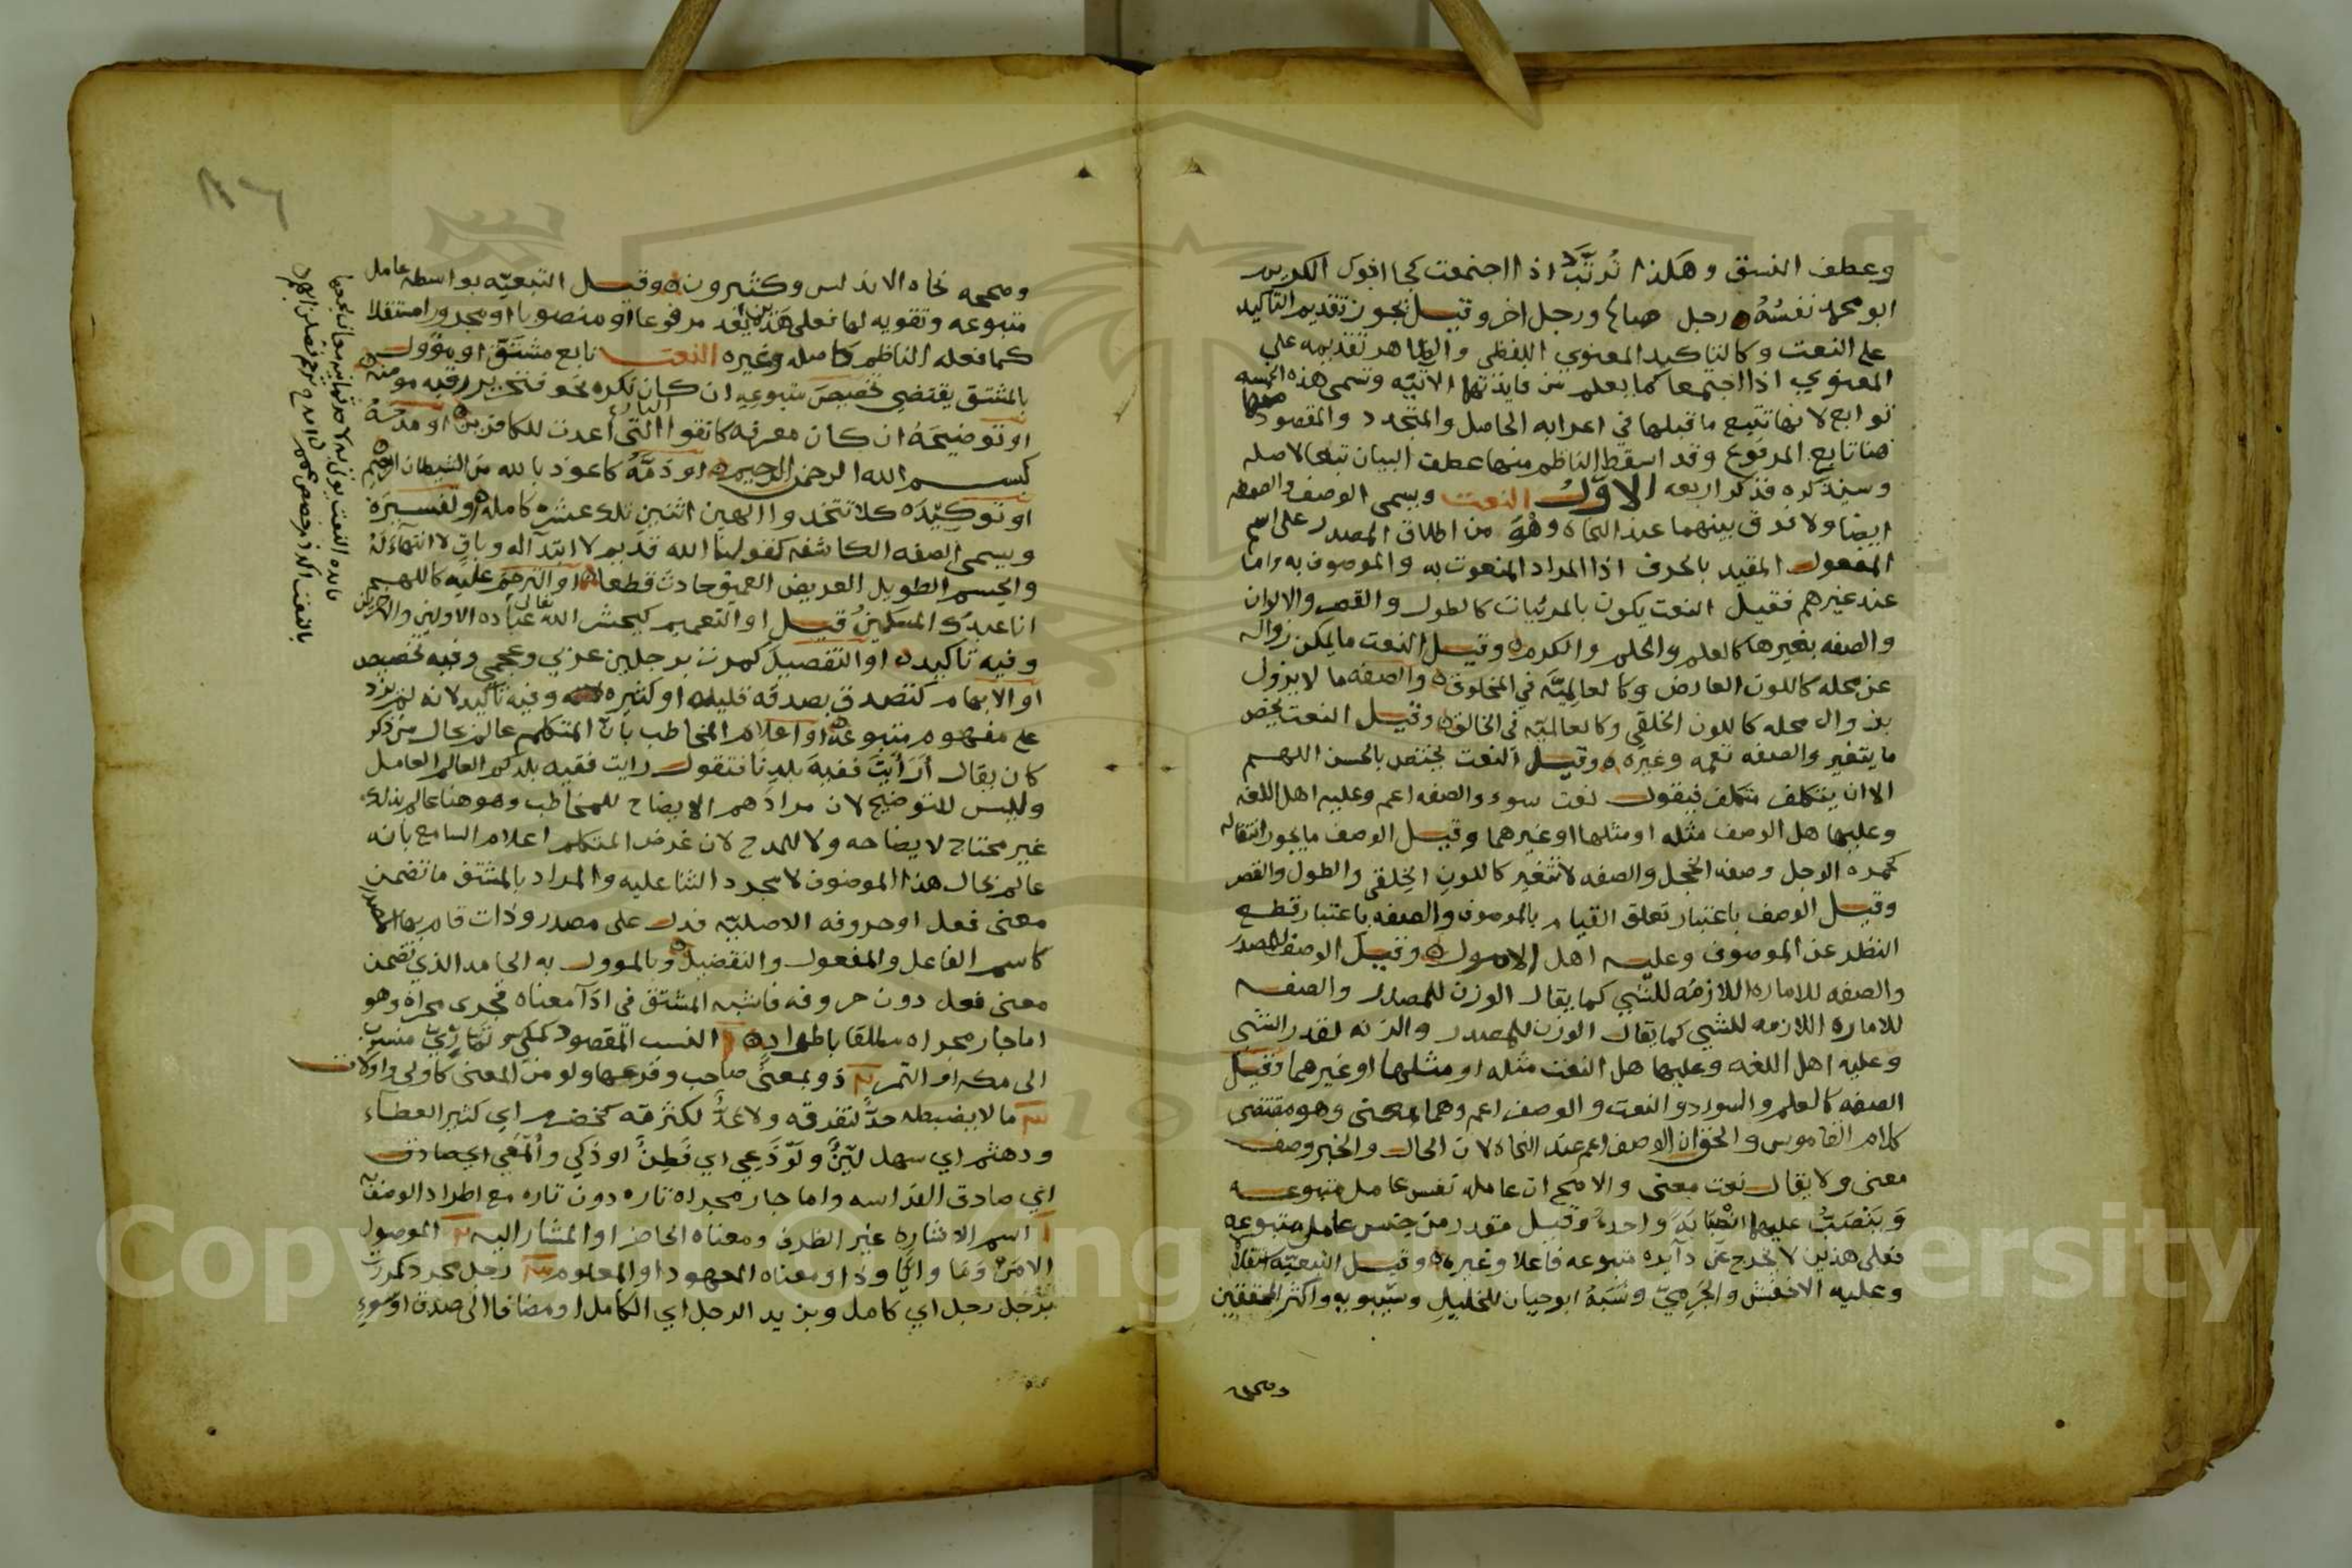 وعطف النسق وهكذا تُرتَّب اذا اجتمعت كجا اخوك الكريم
ابو محمد نفسُهُ رجل صباغ ورجل اخر وقيل يجوز تقديم التاكيد
على النعت وكالتاكيد المعنوي اللفظي والظاهر تقديمه على
المعنوي اذا اجتمعا كما يعلم من فايدتها الاتيه وتسمى هذه الخمسه
توابع لانها تتبع ما قبلها في اعرابه الحاصل والمتجدد والمقصود منها
هنا تابع المرفوع وقد اسقط الناظم منها عطف البيان تبعا لاصله
وسنذكره فذكر اربعه الاول النعت ويسمى الوصف والصفه
ايضا ولا فرق بينهما عند النحاه وهو من اطلاق المصدر على اسم
المفعول المقيد بالحرف اذ المراد المنعوت به والموصوف به واما
عند غيرهم فقيل النعت يكون بالمرئيات كالطول والقصر والالوان
والصفه بغيرها كالعلم والحلم والكرم وقيل النعت ما يمكن زواله
عن محله كاللون العارض وكالعالميّه في المخلوق والصفه ما لا يزول
بزوال محله كاللون الخلقي وكالعالميّه في الخالق وقيل النعت يخص
ما يتغير والصفه تعمه وغيره وقيل النعت يختص بالحسن اللهم
الا ان يتكلف متكلف فيقول نعت سوء والصفه اعم وعليه اهل اللغه
وعليها هل الوصف مثله او مثلها او غيرهما وقيل الوصف ما يجوز انتقاله
كحمره الوجل وصفه الخجل والصفه لا تتغير كاللون الخِلقي والطول والقصر
وقيل الوصف باعتبار تعلق القيام بالموصوف والصفه باعتبار قطع
النظر عن الموصوف وعليه اهل الاصول وقيل الوصف للمصدر
والصفه للاماره اللازمه للشي كما يقال الوزن للمصدر والصفه
للاماره اللازمه للشي كما يقال الوزن للمصدر والزنه لقدر الشي
وعليه اهل اللغه وعليها هل النعت مثله او مثلها او غيرهما وقيل
الصفه كالعلم والسواد والنعت والوصف اعم وهما بمعنى وهو مقتضى
كلام القاموس والحق ان الوصف اعم عند النحاه لان الحال والخبر وصف
معنى ولا يقال نعت معنى والاصح ان عامله نفس عامل متبوعه
وينصبُّ عليهما انصبابةً واحدةً وقيل مقدر من جنس عامل متبوعه
فعلى هذين لا يخرج عن دآيره متبوعه فاعلا وغيره وقيل التبعيّه
وعليه الاخفش والجَرميّ ونَسَبَهُ ابو حيان للخليل وسيبويه واكثر المحققين
وصححه
وصححه نحاه الاندلس وكثيرون وقيل التبعيّه بواسطه عامل
متبوعه وتقويه لها فعلى هذين يعد مرفوعا او منصوبا او مجرورا مستقلا
كما فعله الناظم كاصله وغيره النعت تابع مشتق او مؤول
بالمشتق يقتضي تخصيص متبوعه ان كان نكره نحو فتحرير رقبه مومنه
او توضيحَهُ ان كان معرفه كاتقوا النارَ التي أعدت للكافرين او مدحَهُ
كبسم الله الرحمن الرحيم او ذمَّهُ كاعوذ بالله من الشيطان الرجيم
او توكيدَه كلا تتخذوا الهين اثنين تلك عشره كامله او تفسيرَه
ويسمى الصفه الكاشفه كقولنا الله قديم لا ابتدآ له وباقٍ لا انتهآءَ لَهُ
والجسم الطويل العريض العميق حادث قطعا او الترحّم عليه كاللهم
انا عبدك المسكينُ قيل او التعميم كيحشر الله تعالى عباده الاولين والاخرين
وفيه تاكيد او التفصيل كمررت برجلين عربي وعجمي وفيه تخصيص
او الابهام كتصدق بصدقه قليله او كثيره وفيه تاكيد لانه لم يزد
على مفهوم متبوعه او اعلام المخاطب بان المتكلم عالم بحال من ذكر
كان يقال أرأيتَ فقيهَ بلدِنا فتقول رايت فقيه بلدكم العالم العامل
وليس للتوضيح لان مرادهم الايضاح للمخاطب وهو هنا عالم بذلك
غير محتاج لايضاحه ولا للمدح لان غرض المتكلم اعلام السامع بانه
عالم بحال هذا الموصوف لا مجرد الثنا عليه والمراد بالمشتق ما تضمن
معنى فعل او حروفه الاصليّه فدل على مصدر وذات قام بها المصدر
كاسم الفاعل والمفعول والتفضيل وبالموول به الجامد الذي تضمن
معنى فعل دون حروفه فاشبه المشتق في ادآ معناه فجرى مجراه وهو
اما جار مجراه مطلقا باطراد النسب المقصود كمكي وتمّاريّ منسوب
الى مكه او التمر ذو بمعنى صاحب وفروعها ولو من المعنى كاولي واولات
ما لا يضبطه حدٌّ لتفرقه ولا عدٌّ لكثرته كخضم اي كثير العطآء
ودهثم اي سهل ليّنٌ ولَوْذَعِي اي فَطِنٌ او ذكي وألمعِي اي صادق
اي صادق الفراسه واما جار مجراه تاره دون تاره مع اطراد الوصف به
اسم الاشاره غير الظرف ومعناه الحاضر او المشار اليه الموصول
الا مَن وما وايّا وذا ومعناه المعهود او المعلوم رجل مجرد كمررت
برجل رجل اي كامل وبزيد الرجل اي الكامل او مضافا الى صدق او سوء